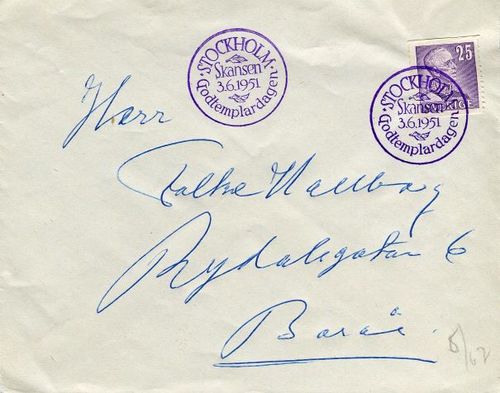 STOCKHOLM
Skansen
3.6.1951
Godtemplardagen
25
STOCKHOLM
Skansen
3.6.1951
Godtemplardagen
Herr
Folke Hallberg
Rydalsgatan 6
Borås